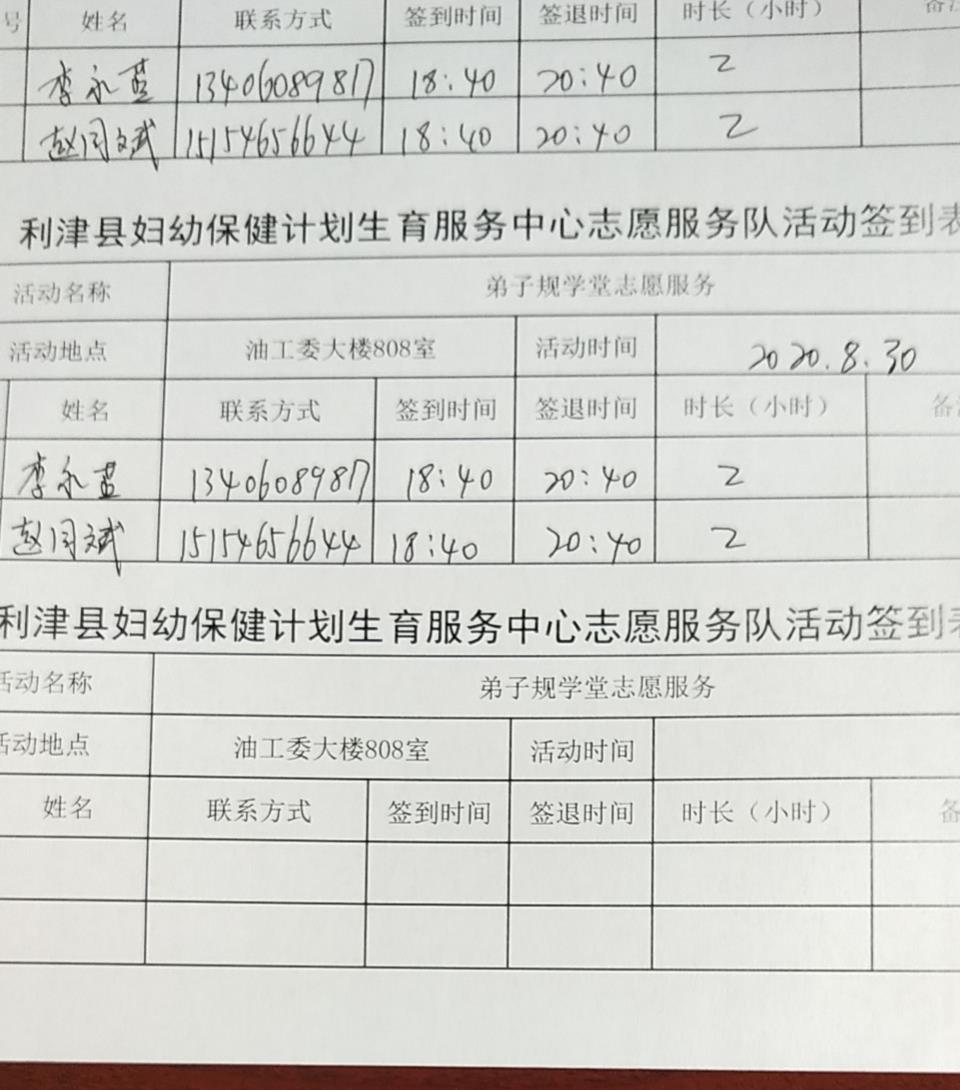 号 姓名 联系方式 签到时间 签退时间 时长（小时） 备注
李永蓝 13406089817 18:40 20:40 2
赵同斌 15154656644 18:40 20:40 2
利津县妇幼保健计划生育服务中心志愿服务队活动签到表
活动名称 弟子规学堂志愿服务
活动地点 油工委大楼808室 活动时间 2020.8.30
姓名 联系方式 签到时间 签退时间 时长（小时） 备注
李永蓝 13406089817 18:40 20:40 2
赵同斌 15154656644 18:40 20:40 2
利津县妇幼保健计划生育服务中心志愿服务队活动签到表
活动名称 弟子规学堂志愿服务
活动地点 油工委大楼808室 活动时间
姓名 联系方式 签到时间 签退时间 时长（小时） 备